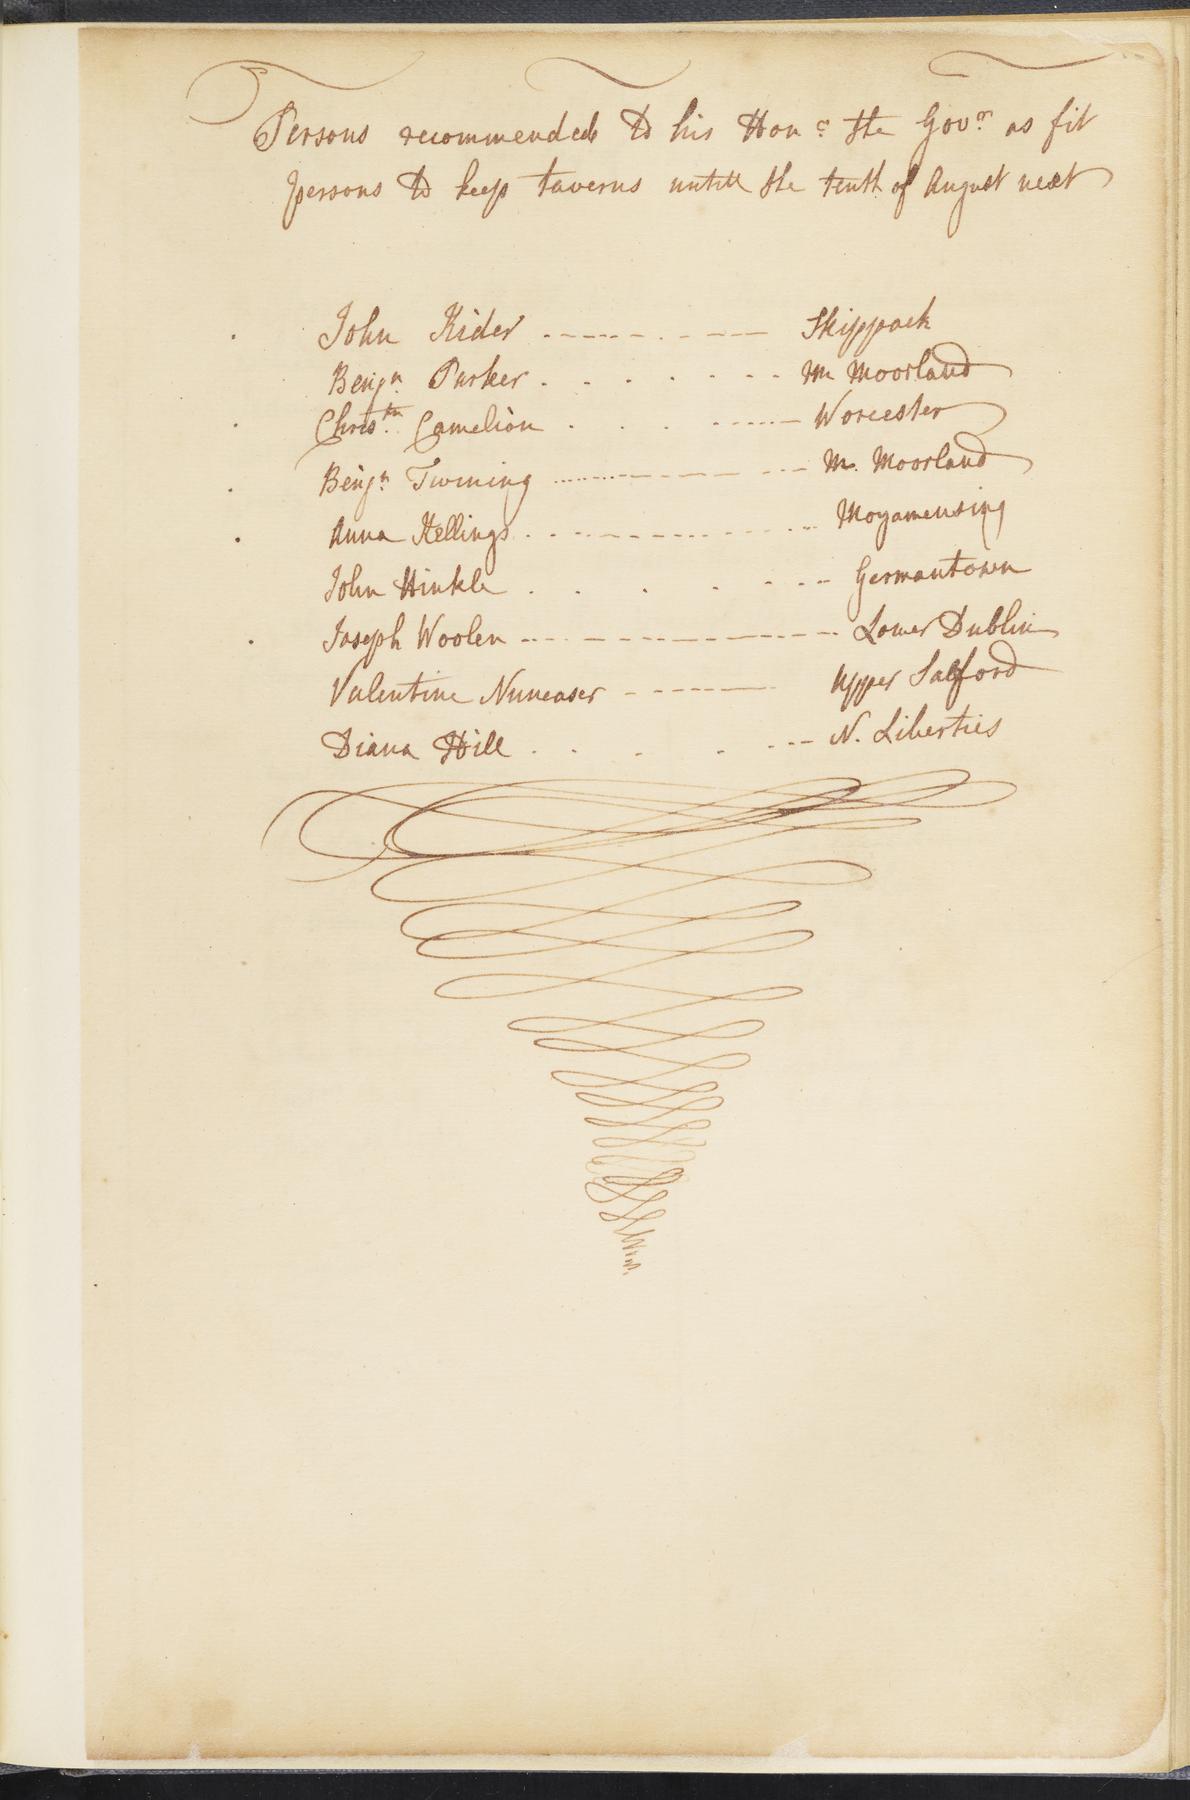 Persons recommended to his Honr the Govr as fit
persons to keep taverns untill the tenth of August next
John Kider - - - - - - - - Skippack
Benjn Parker - - - - - - - - M Moorland
Christn Camelion - - - - - - - - Worcester
Benjn Twining - - - - - - - - M. Moorland
Anna Kellings - - - - - - - - Moyamensing
John Hinkle - - - - - - - - Germantown
Joseph Woolen - - - - - - - - Lower Dublin
Valentine Nuneaser - - - - - - - - Upper Salford
Diana Hill - - - - - - - - N. Liberties